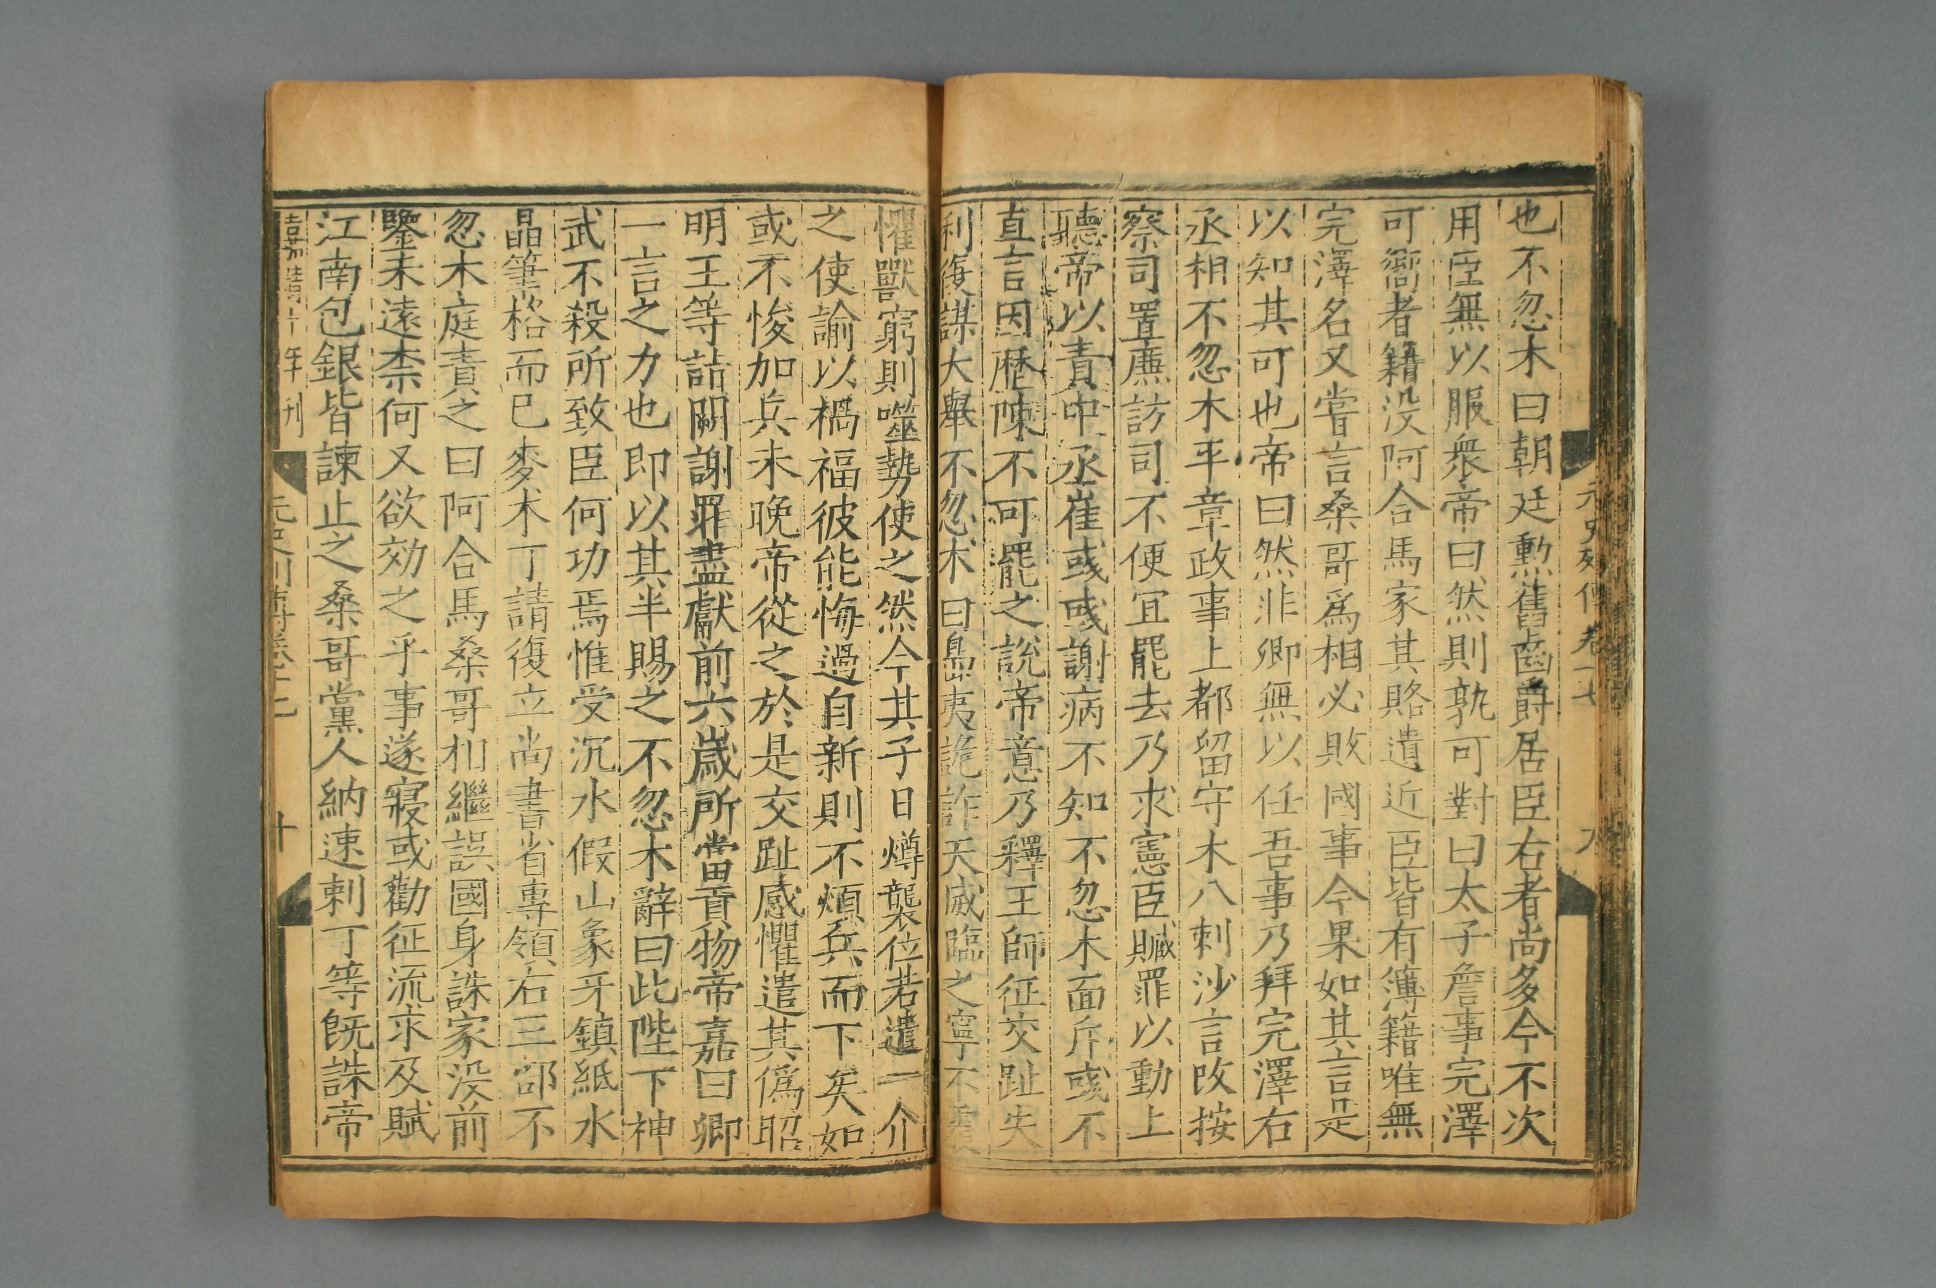 元史列傳卷十七
九
也不忽木曰朝廷勲舊齒爵居臣右者尚多今不次
用臣無以服衆帝曰然則孰可對曰太子詹事完澤
可嚮者籍没阿合馬家其賂遺近臣皆有簿籍唯無
完澤名又嘗言桑哥爲相必敗國事今果如其言是
以知其可也帝曰然非卿無以任吾事乃拜完澤右
丞相不忽木平章政事上都留守木八剌沙言改按
察司置廉訪司不便宜罷去乃求憲臣贓罪以動上
聽帝以責中丞崔彧彧謝病不知不忽木面斥彧不
直言因歷陳不可罷之說帝意乃釋王師征交趾失
利復謀大舉不忽木曰島夷詭詐天威臨之寧不震
懼獸窮則噬勢使之然今其子日燇襲位若遣一介
之使諭以禍福彼能悔過自新則不煩兵而下矣如
或不悛加兵未晚帝從之於是交趾感懼遣其僞昭
明王等詣闕謝罪盡獻前六歲所當貢物帝嘉曰卿
一言之力也即以其半賜之不忽木辭曰此陛下神
武不殺所致臣何功焉惟受沉水假山象牙鎮紙水
晶筆格而已麥术丁請復立尚書省專領右三部不
忽木庭責之曰阿合馬桑哥相繼誤國身誅家没前
鑒未遠柰何又欲効之乎事遂寢或勸征流求及賦
江南包銀皆諫止之桑哥黨人納速剌丁等既誅帝
嘉靖十年刊
元史列傳卷十七
十